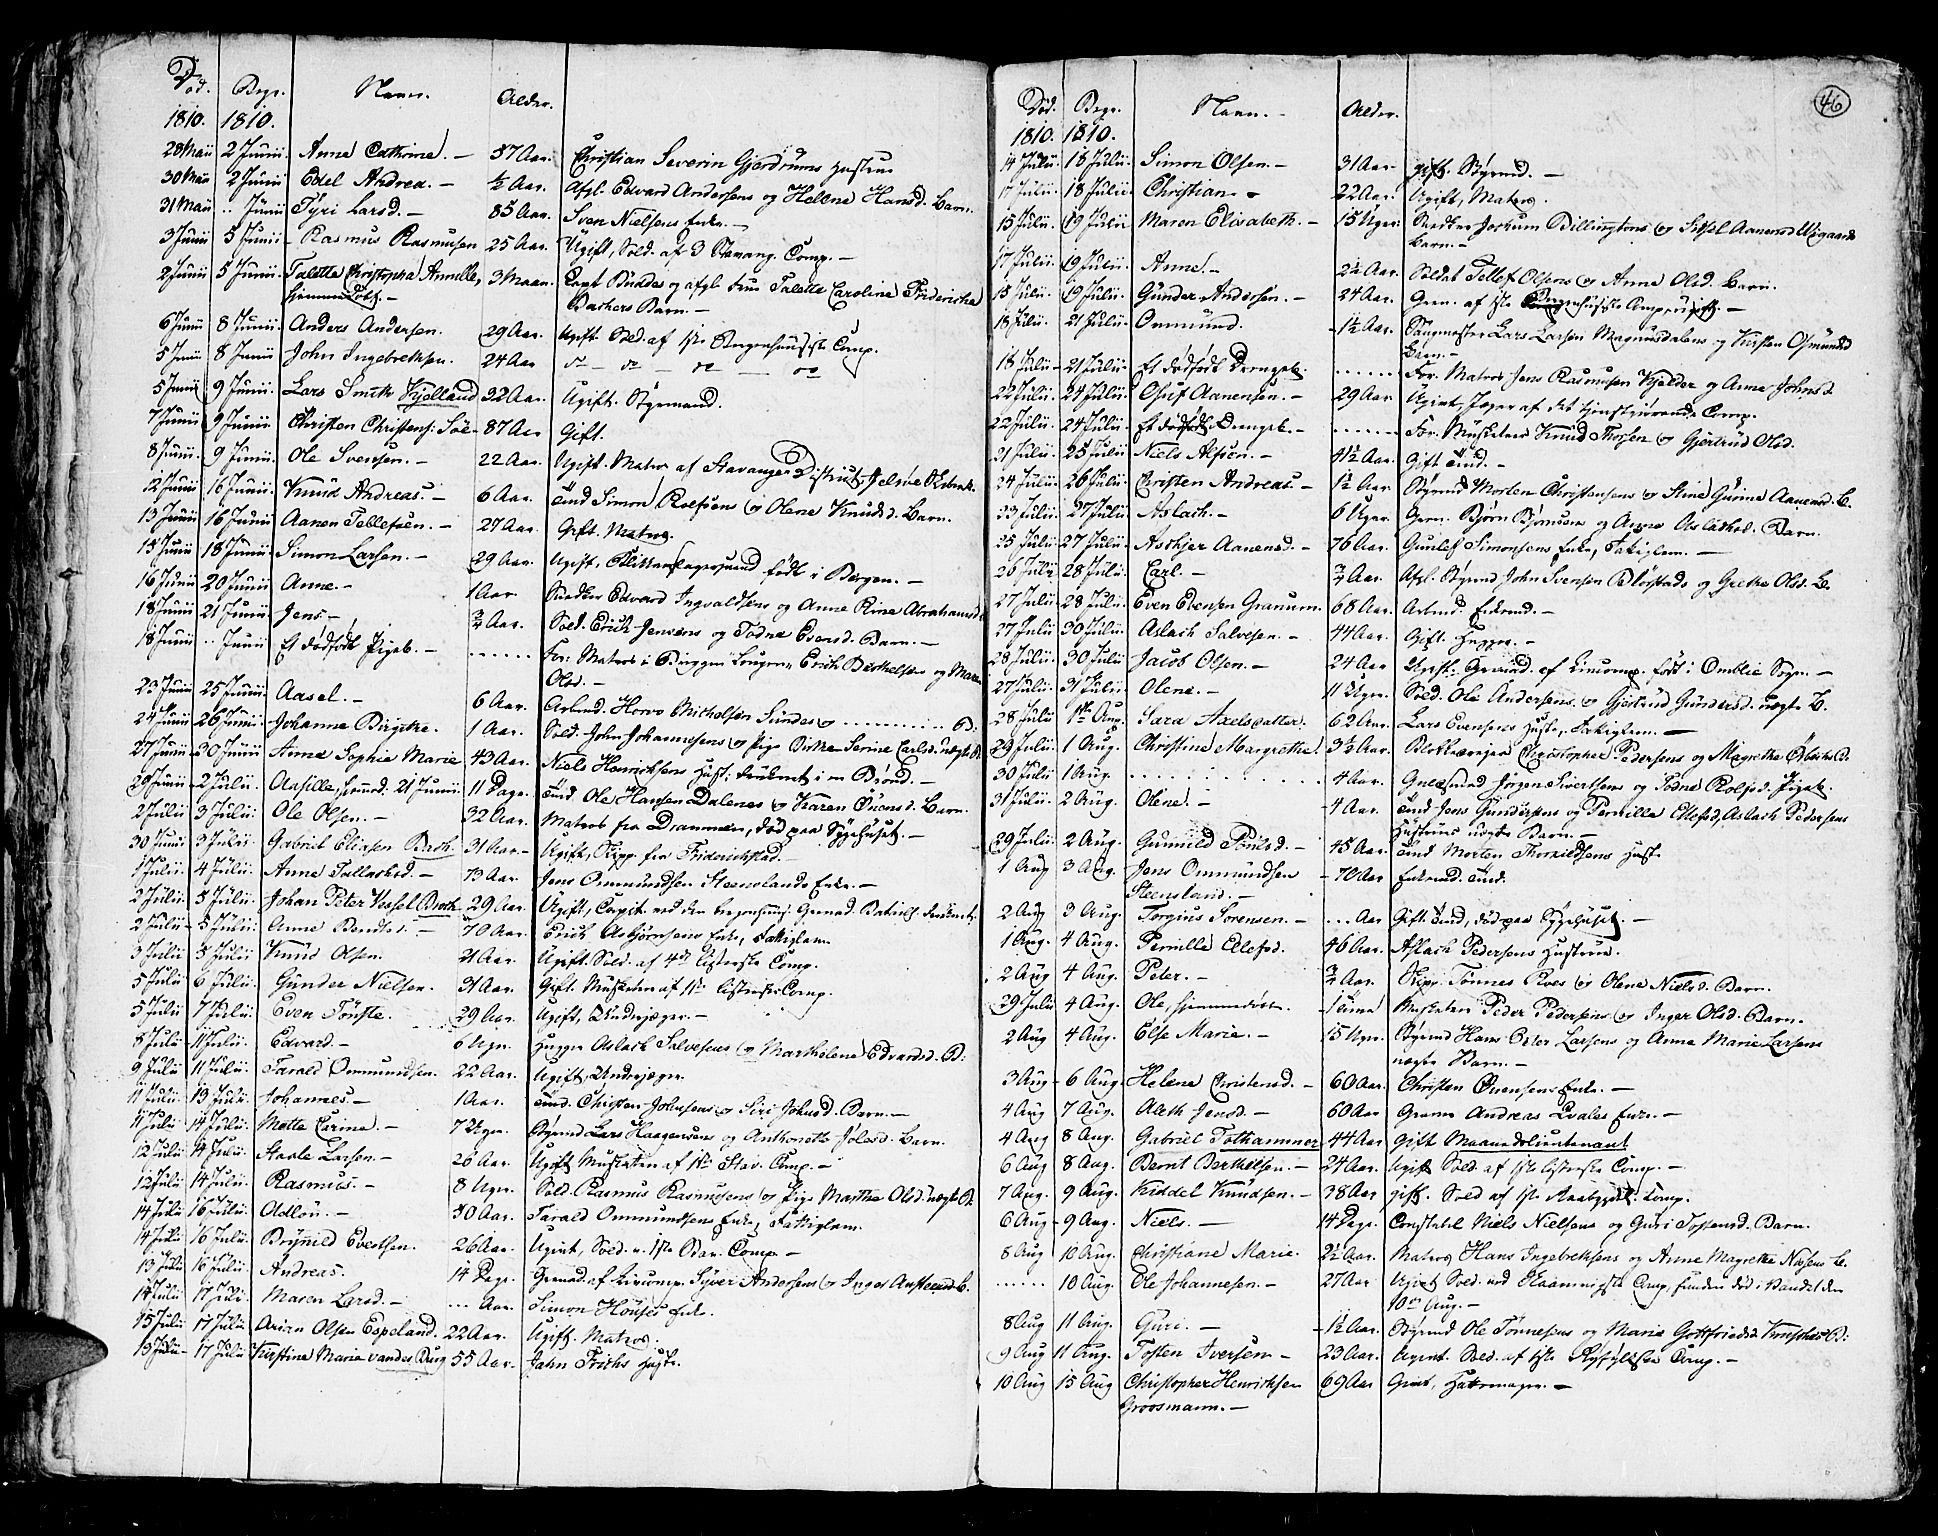 Død. Begr. Navn. Alder.
1810. 1810.
28 Maii 2 Junii Anne Cathrine. - 37 Aar. Christian Severin Gjerdrums Hustrue
30 Maii 2 Junii Edel Andrea. - ½ Aar. Afgl. Edvard Andersens og Helene Hansd. Barn.
31 Maii .. Junii Tyri Larsd. - 85 Aar. Sven Nielsens Enke. -
3 Junii 5 Junii Rasmus Rasmusen 25 Aar. Ugift, Sold. af 3 Stavang. Comp. -
2 Junii 5 Junii Talette Christopha Armille, 3 Maan. Capt Buddes og afgl. Frue Talette Caroline Fridericha
hjemmedøbt. - Bachers Barn. -
6 Junii 8 Junii Anders Andersen. 29 Aar. Ugift Sold. af 1ste Bergenhusiske Comp.
5 Junii 8 Junii John Ingebretsen. 24 Aar do - do - do - do
5 Junii 9 Junii Lars Smith Kjelland 22 Aar. Ugift. Styrmand.
7 Junii 9 Junii Christen Christens: Söe- 87 Aar Gift.
8 Junii 9 Junii Ole Svensen. - 22 Aar. Ugift. Matros af Stavanger District
12 Junii 16 Junii Knud Andreas. - 6 Aar. Simon Rolfsens og Olene Knudsd. Barn.
13 Junii 16 Junii Aanen Tellefsen. - 27 Aar. Gift. Matros.
15 Junii 18 Junii Simon Larsen. - 29 Aar. Ugift, født i Bergen. -
16 Junii 20 Junii Anne. - 1 Aar. Snedker Edvard Ingvaldsens og Anne Abrahamsd.
18 Junii 21 Junii Jens. - ¾ Aar. Sold. Erich Jensens og Todne Evensd. Barn. -
18 Junii .. Junii Et dödfödt Pigeb. - ...... For: Matros i Briggen Erich Berthelsen og Maren
Olsd. -
23 Junii 25 Junii Aasel. - 6 Aar. Arbmd. B.
24 Junii 26 Junii Johanne Birgitte. 1 Aar. Sold. John Johannesens og Pige Serine Carlsd. uægte B.
27 Junii 30 Junii Anne Sophie Marie 43 Aar. Niels Henrichsens Hust. druknet i en Brönd. -
29 Junii 2 Julii. 21 Junii 11 Dage. Ole Hansen Dalenes og Karen Ouensd. Barn
2 Julii 3 Julii. Ole Olsen. - 32 Aar. Matros fra Drammen, död paa Sygehuset. -
30 Junii 3 Julii. Gabriel Eliasen Bach. 31 Aar. - Ugift, Skipp. fra Friderichstad. -
1 Julii. 4 Julii. Anne Tallaksd. - 73 Aar. Jens Ommundsen Steenslands Enke. -
2 Julii. 5 Julii. Johan Peter Vessel Broch 29 Aar. Ugift, Capit. ved den bergenhuus. Grenad. Bataill. druknet.
2 Julii - 5 Julii. Anne Bentsd. - 70 Aar. Erich Asbjörnsens Enke, Fattiglem.
3 Julii 5 Julii Knud Olsen. 21 Aar. Ugift. Sold. af 4de Listerske Comp.
5 Julii 6 Julii. Gunder Nielsen. 31 Aar. Gift. Musketer af 1ste Listerske Comp.
5 Julii 7 Julii. Even Tönste. 29 Aar. Ugift, Underjæger. -
8 Julii - 11 Julii. Edvard. - 6 Uger. Hugger Aslack Salvesens og Marthelene Edvardsd. B:
9 Julii 11 Julii. Tarald Ommundsen. 22 Aar. Ugift, Underjæger.
11 Julii 13 Julii. Johannes. - 1 Aar. Christen Johnsens og Siri Johnsd. Barn. -
11 Julii 14 Julii. Mette Carine. - 7 Uger. Styrmd Lars Haagensens og Anthonette Joelsd. Barn
12 Julii 14 Julii. Staale Larsen. - 26 Aar. Ugift Musketer af 1ste Stav. Comp. -
12 Julii 14 Julii. Rasmus. - 8 Uger. Sold. Rasmus Rasmusens og Pige Marthe Olsd. uægte B.
14 Julii 16 Julii. Odlou. - 50 Aar. Tarald Ommundsens Enke, Fattiglem.
14 Julii 16 Julii. Brynild Evertsen. 26 Aar. Ugift, Sold. v. 1ste Stav. Comp. -
13 Julii 16 Julii. Andreas. 14 Dage. Grenad. af Livcomp. Syver Andersens og Inger Anstensd. B.
14 Julii 17 Julii. Maren Larsd. - ... Aar. Simon Enke.
15 Julii 17 Julii Arian Olsen Espeland. 22 Aar. Ugift. Matros.
15 Julii - 17 Julii Kirstine Marie vander Burg 55 Aar. Jahn Frichs Hustr.
46
Död. Begr. Navn. - Alder.
1810. 1810.
14 Julii. 18 Julii. Simon Olsen. - 31 Aar gift. Styrmd. -
17 Julii. 18 Julii. Christian. - 22 Aar. Ugift, Matros.
15 Julii. 19 Julii Maren Elisabeth. - 15 Uger. Snedker Jochum Billingtons og Sitsel Aanensd. Ugaards
Barn. -
17 Julii. 19 Julii. Anne. - 2½ Aar. Soldat Tellef Olsens og Anne Olsd. Barn.
15 Julii. 19 Julii. Gunder Andersen. - 24 Aar. Gren. af 1ste Bergenhusiske Comp. ugift. -
18 Julii. 21 Julii. Ommund. - 1½ Aar. Sangmester Lars Larsen Magnusdalens og Kirsten Osmunds
Barn. -
18 Julii. 21 Julii. Et dödfödt Drengeb. ...... For. Matros Jens Rasmusen Kjelder og Anne Johnsd.
22 Julii. 24 Julii. Oluf Aanensen. - 29 Aar Ugivt, Jæger af det tjenstgjörende Comp.
22 Julii. 24 Julii. Et dödfödt Drengeb. - ...... For. Musketeer Knud Thorsen og Gjertrud Olsd.
21 Julii. 25 Julii Niels Alfsen. - 41½ Aar. Gift -
24 Julii. 26 Julii. Christen Andreas. - 1½ Aar. Styrmd Morten Christensens og Stine Gurine Aanensd. B.
23 Julii. 27 Julii. Aslach. - 6 Uger. Gren. Björn Björnsens og Anne Aslaksd. Barn.
25 Julii. 27 Julii. Aschjer Aanensd. - 76 Aar. Gunlef Simonsens Enke, Fattiglem. -
26 Julii. 28 Julii. Carl. - ¾ Aar. Afgl. Styrmd John Svensen og Grethe Olsd. B.
27 Julii 28 Julii. Even Evensen Granum. 68 Aar. Arbmd. Enkemd. -
27 Julii 30 Julii Aslach Salvesen. - 44 Aar. Gift. Hugger. -
28 Julii 30 Julii Jacob Olsen. - 24 Aar Ugift. Grenad. af Livcomp. född i Omblie Sogn. -
27 Julii. 31 Julii. Olene. - 11 Uger. Sold. Ole Andersens og Gjertrud Gundersd. uægte B.
28 Julii 1ste Aug. Sara Axelsdatter. 62 Aar. Lars Evensens Hustr, Fattiglem. -
29 Julii. 1 Aug. Christine Margrethe 3½ Aar. Christopher Pedersens og Magrethe B.
30 Julii 1 Aug. ...... 4 Aar. Jörgen Sivertsens og Todne Rolfsd. Pigeb.
31 Julii. 2 Aug. Olene. - 4 Aar. Jens Gundersens og Pernille Ellefsd, Aslach Pedersens
Hustrues uægte Barn. -
29 Julii. 2 Aug. Gunnild Tönesd. - 45 Aar. Morten Thorkildsens Hustr.
1 Aug 3 Aug. Jens Ommundsen - 70 Aar Enkemd.
Steensland. -
2 Aug 3 Aug. Torgius Sorensen. - ... Aar Gift död paa Sygehuset. -
1 Aug. 4 Aug. Pernille Ellefsd. 46 Aar. Aslach Pedersens Hustrue.
2 Aug 4 Aug. Peter. - ¾ Aar. Skipp. Tönnes Rves og Olene Nielsd. Barn.
29 Julii 4 Aug. Ole, hjemmedöbt. 1 Time Musketer Peder Pedersens og Inger Olsd. Barn.
2 Aug 4 Aug. Else Marie. - 15 Uger. Styrmd Hans Peter Larsens og Anne Marie Larsens
uægte Barn. -
3 Aug - 6 Aug. Helene Christensd. - 60 Aar. Christen Ouensens Enke. -
4 Aug 7 Aug. Aleth Jensd. - 60 Aar Andreas Qvales Enke. -
4 Aug 8 Aug. Gabriel Tothammer 44 Aar Gift Maanedslieutenant
6 Aug 8 Aug. Bernt Berthelsen. - 24 Aar. Ugift Sold. af 1ste Listerske Comp. -
7 Aug. 9 Aug. Kiddel Knudsen. - 38 Aar gift. Sold af 1ste Raabygdel. Comp.
6 Aug - 9 Aug. Niels. - 14 Dage. Constabel Niels Nielsens og Guri Tossensd. Barn.
8 Aug 10 Aug. Christiane Marie. 2½ Aar. Matros Hans Ingebretsens og Anne Magrethe B.
...... 10 Aug. Ole Johannesen. - 27 Aar Ugivt Sold. ved Comp, funden död i Vandet den
10de Aug. -
8 Aug 11 Aug. Guri. - 1½ Aar. Styrmd Ole Tönnesens og Marie Gottfriedsd. B:
9 Aug 11 Aug. Tosten Iversen. - 23 Aar. Ugivt. Sold. af 1ste Ryfylkske Comp. -
10 Aug 15 Aug Christopher Henrichsen 69 Aar Givt, Hattemager. -
Groosmann. -